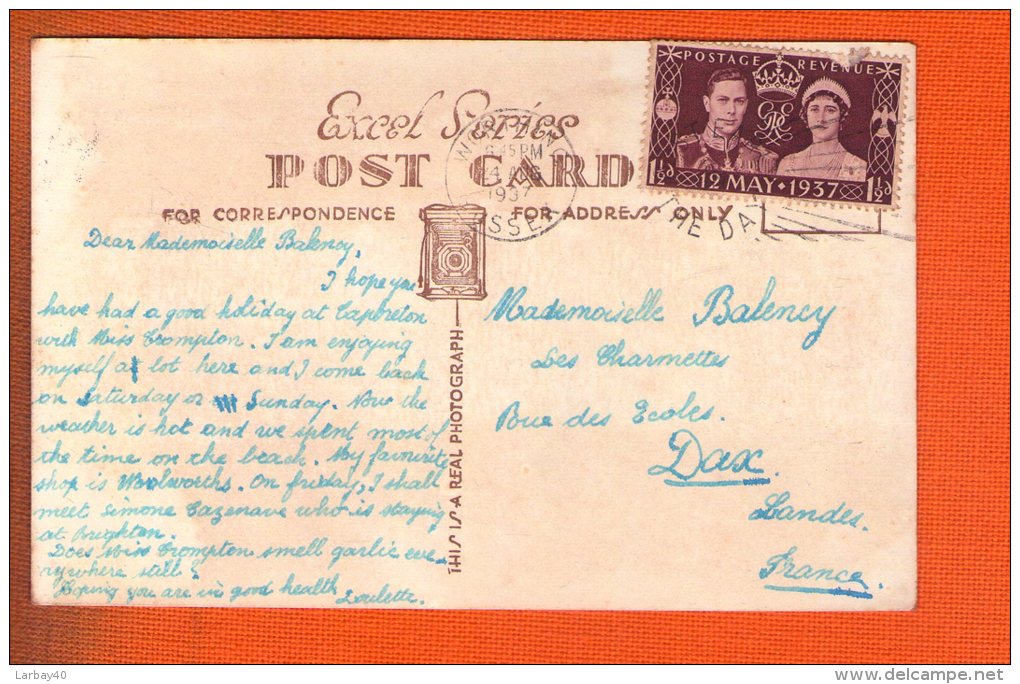 POSTAGE REVENUE
1½d 12 MAY · 1937 1½d
Excel Series
POST CARD
WORTHING
6.45 PM
4 AUG
1937
SUSSEX
THE DA
FOR CORRESPONDENCE
FOR ADDRESS ONLY
THIS IS A REAL PHOTOGRAPH
Dear Mademoiselle Balency,
I hope you
have had a good holiday at Capbreton
with Miss Crompton. I am enjoying
myself a lot here and I come back
on Saturday or Sunday. Now the
weather is hot and we spent most of
the time on the beach. My favourite
shop is Woolworths. On friday, I shall
meet Simone Cazenave who is staying
at Brighton.
Does Miss Crompton smell garlic eve-
rywhere still?
Hoping you are in good health
Loulette.
Mademoiselle Balency
Les Charmettes
Rue des Ecoles.
Dax.
Landes.
France.
Larbay40
www.delcampe.net